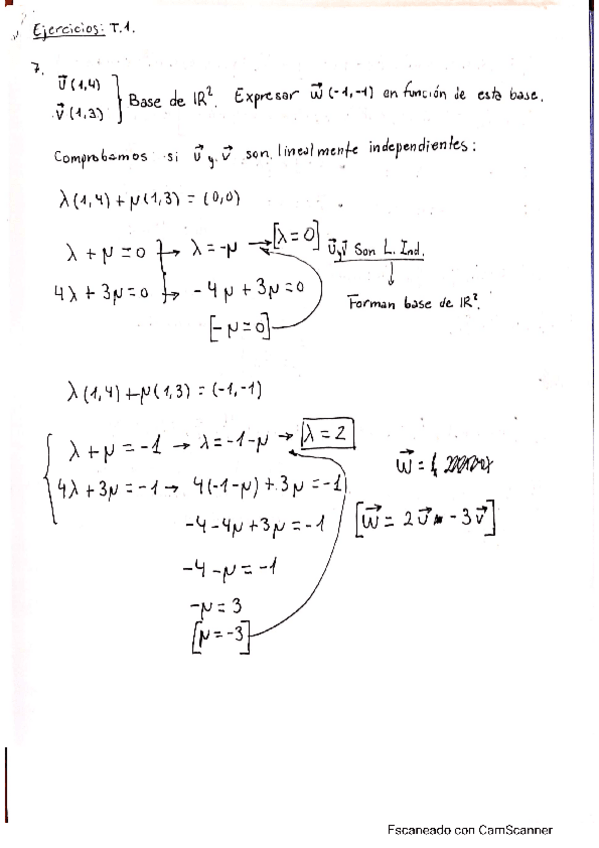 Ejercicios: T.1.
7.
U⃗(1,4)
V⃗(1,3) } Base de ℝ². Expresar w⃗(-1,-1) en función de esta base.
Comprobamos si U⃗ y V⃗ son linealmente independientes:
λ(1,4) + μ(1,3) = (0,0)
λ + μ = 0 → λ = -μ → [λ = 0] U⃗ y V⃗ Son L. Ind.
4λ + 3μ = 0 → -4μ + 3μ = 0 ↓ Forman base de ℝ².
[-μ = 0]
λ(1,4) + μ(1,3) = (-1,-1)
{ λ + μ = -1 → λ = -1-μ → [λ = 2]
4λ + 3μ = -1 → 4(-1-μ) + 3μ = -1
-4-4μ+3μ = -1
-4-μ = -1
-μ = 3
[μ = -3]
w⃗ = (
[w⃗ = 2U⃗ - 3V⃗]
Escaneado con CamScanner